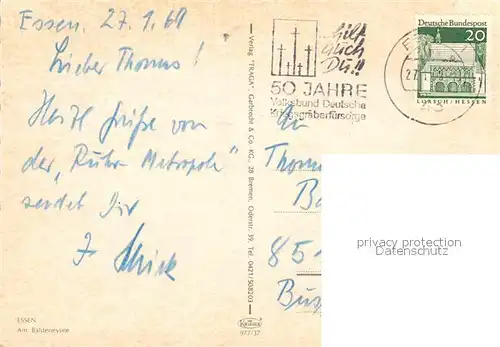 Essen, 27.1.68
Lieber Thomas!
Herzl. Grüße von
der "Ruhr-Metropole"
sendet Dir
ESSEN
Am Baldeneysee
Verlag "TRAGA", Garbrecht & Co. KG., 28 Bremen, Oderstr. 39, Tel. 0421/508203
977/37
hilf
auch
Du!!
50 JAHRE
Volksbund Deutsche
Kriegsgräberfürsorge
Deutsche Bundespost
20
LORSCH/HESSEN
An
Thom
Ba
851
privacy protection
Datenschutz